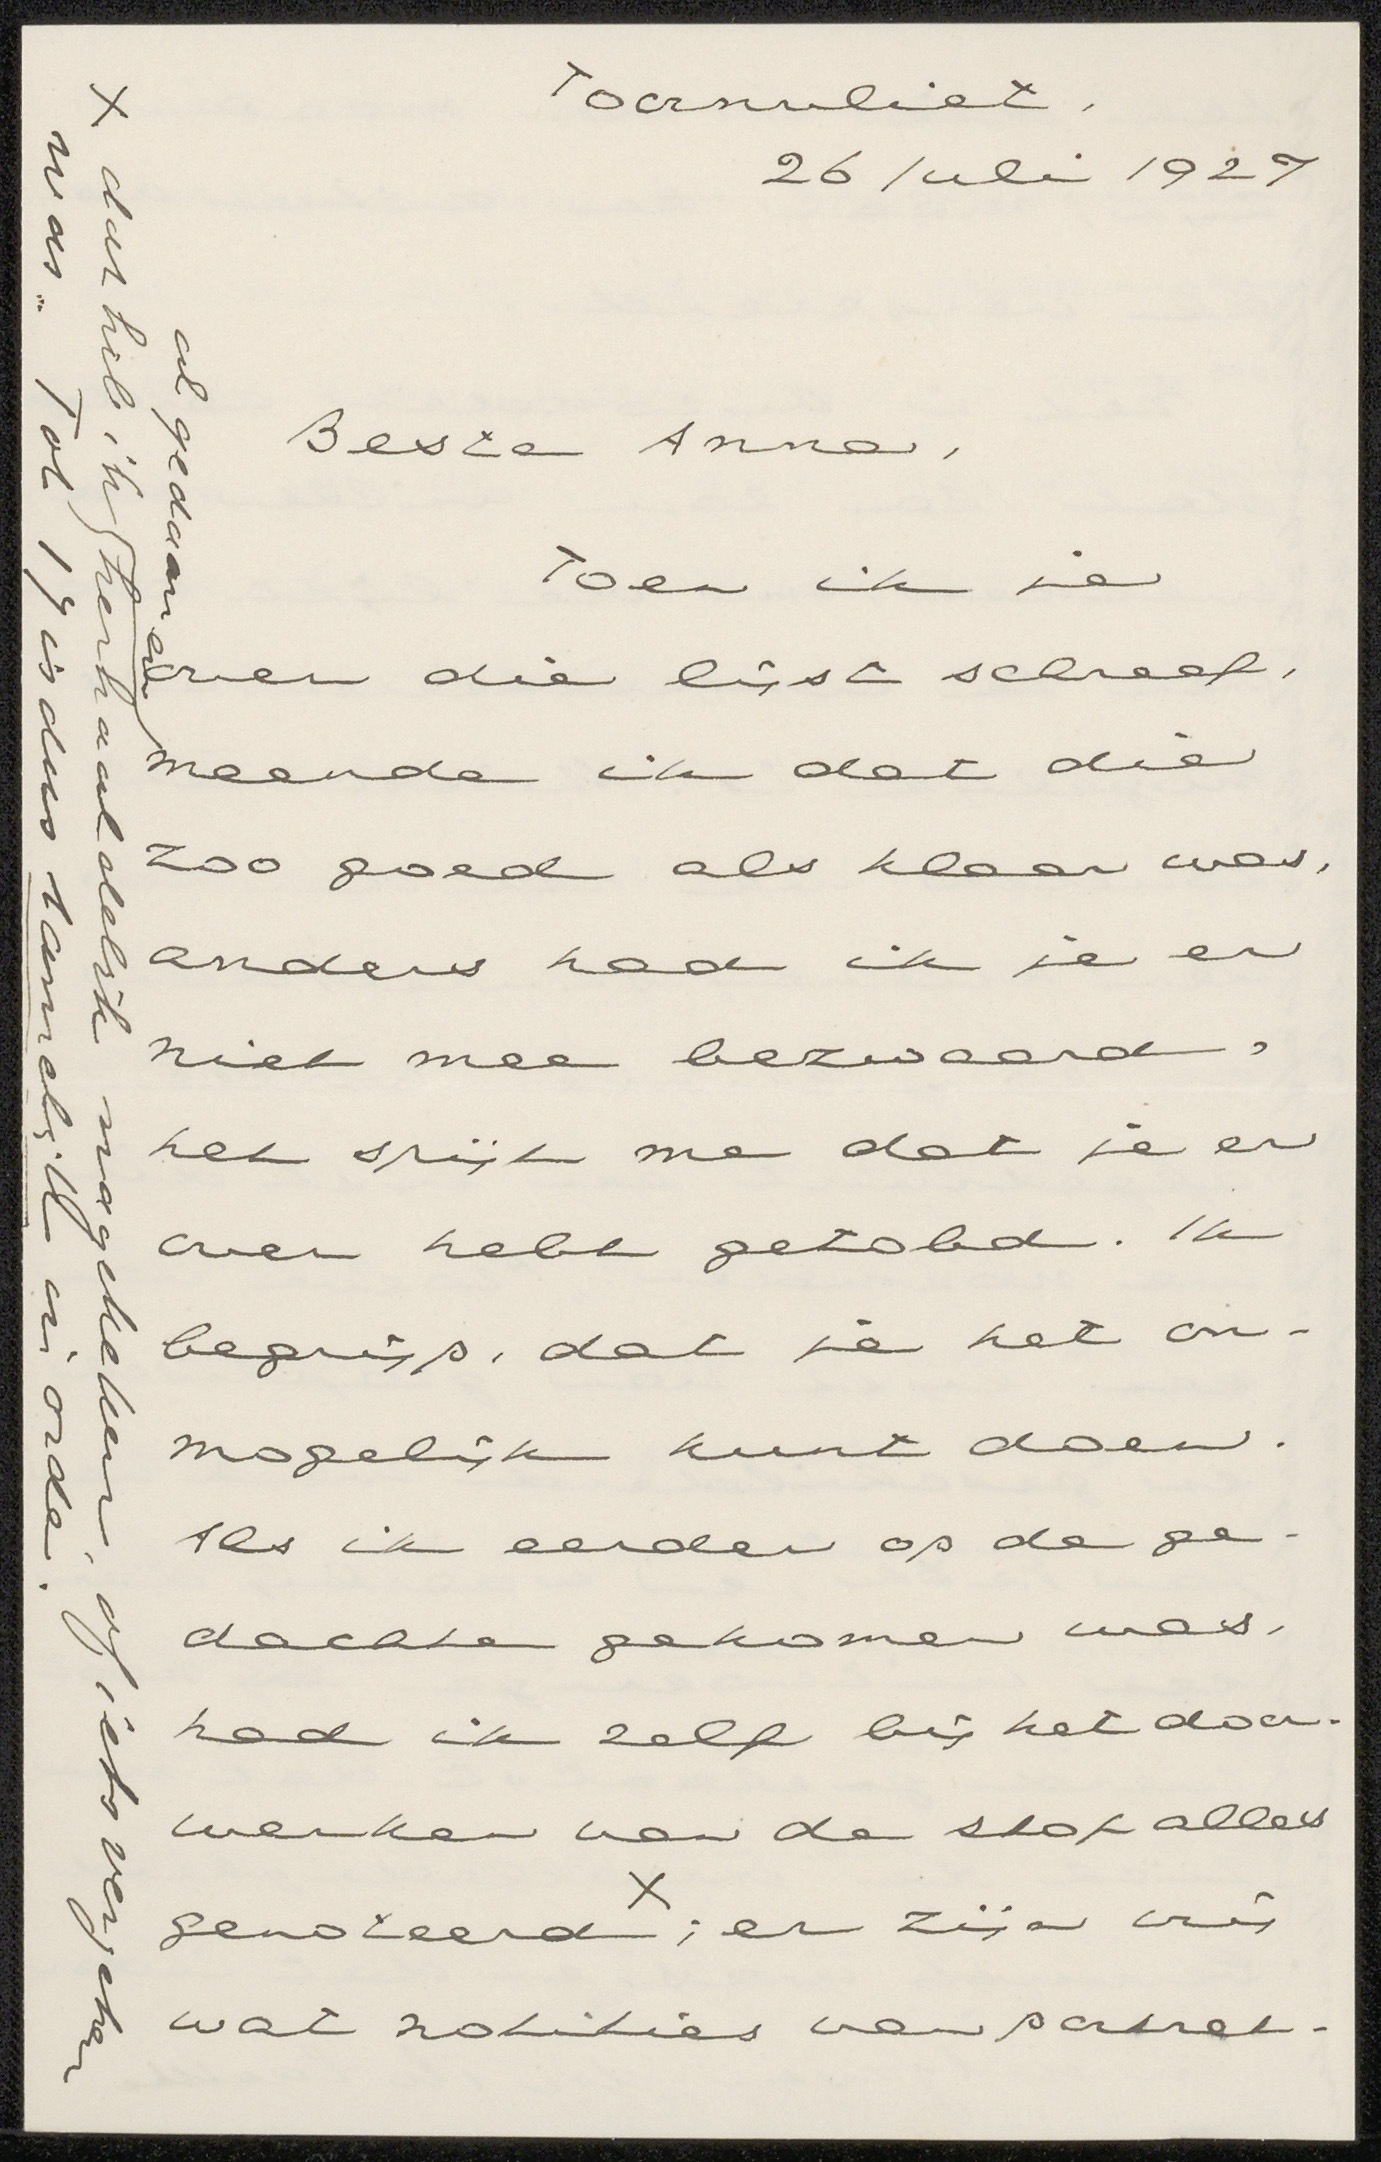 Toornvliet,
26 Juli 1927
Beste Anna,
Toen ik je
over die lijst schreef,
meende ik dat die
zoo goed als klaar was,
anders had ik je er
niet mee bezwaard,
het spijt me dat je er
over hebt getobd. Ik
begrijp, dat je het on-
mogelijk kunt doen.
Als ik eerder op de ge-
dachte gekomen was,
had ik zelf bij het door-
werken van de stof alles
genoteerd X; er zijn vrij
wat notities van portret-
X dan heb ik herhaaldelijk nagekeken, of iets vergeten
al gedaan en
was. Tot 19 is dus tamelijk in orde.